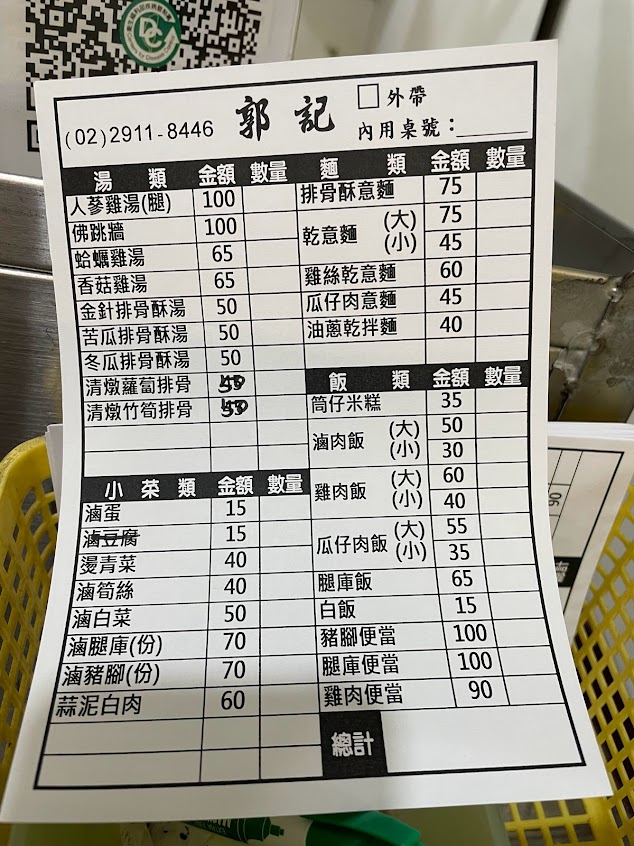 (02)2911-8446 郭記 □外帶
內用桌號：______
湯類 金額 數量
人蔘雞湯(腿) 100
佛跳牆 100
蛤蠣雞湯 65
香菇雞湯 65
金針排骨酥湯 50
苦瓜排骨酥湯 50
冬瓜排骨酥湯 50
清燉蘿蔔排骨
清燉竹筍排骨
小菜類 金額 數量
滷蛋 15
滷豆腐 15
燙青菜 40
滷筍絲 40
滷白菜 50
滷腿庫(份) 70
滷豬腳(份) 70
蒜泥白肉 60
麵類 金額 數量
排骨酥意麵 75
乾意麵 (大) 75
(小) 45
雞絲乾意麵 60
瓜仔肉意麵 45
油蔥乾拌麵 40
飯類 金額 數量
筒仔米糕 35
滷肉飯 (大) 50
(小) 30
雞肉飯 (大) 60
(小) 40
瓜仔肉飯 (大) 55
(小) 35
腿庫飯 65
白飯 15
豬腳便當 100
腿庫便當 100
雞肉便當 90
總計